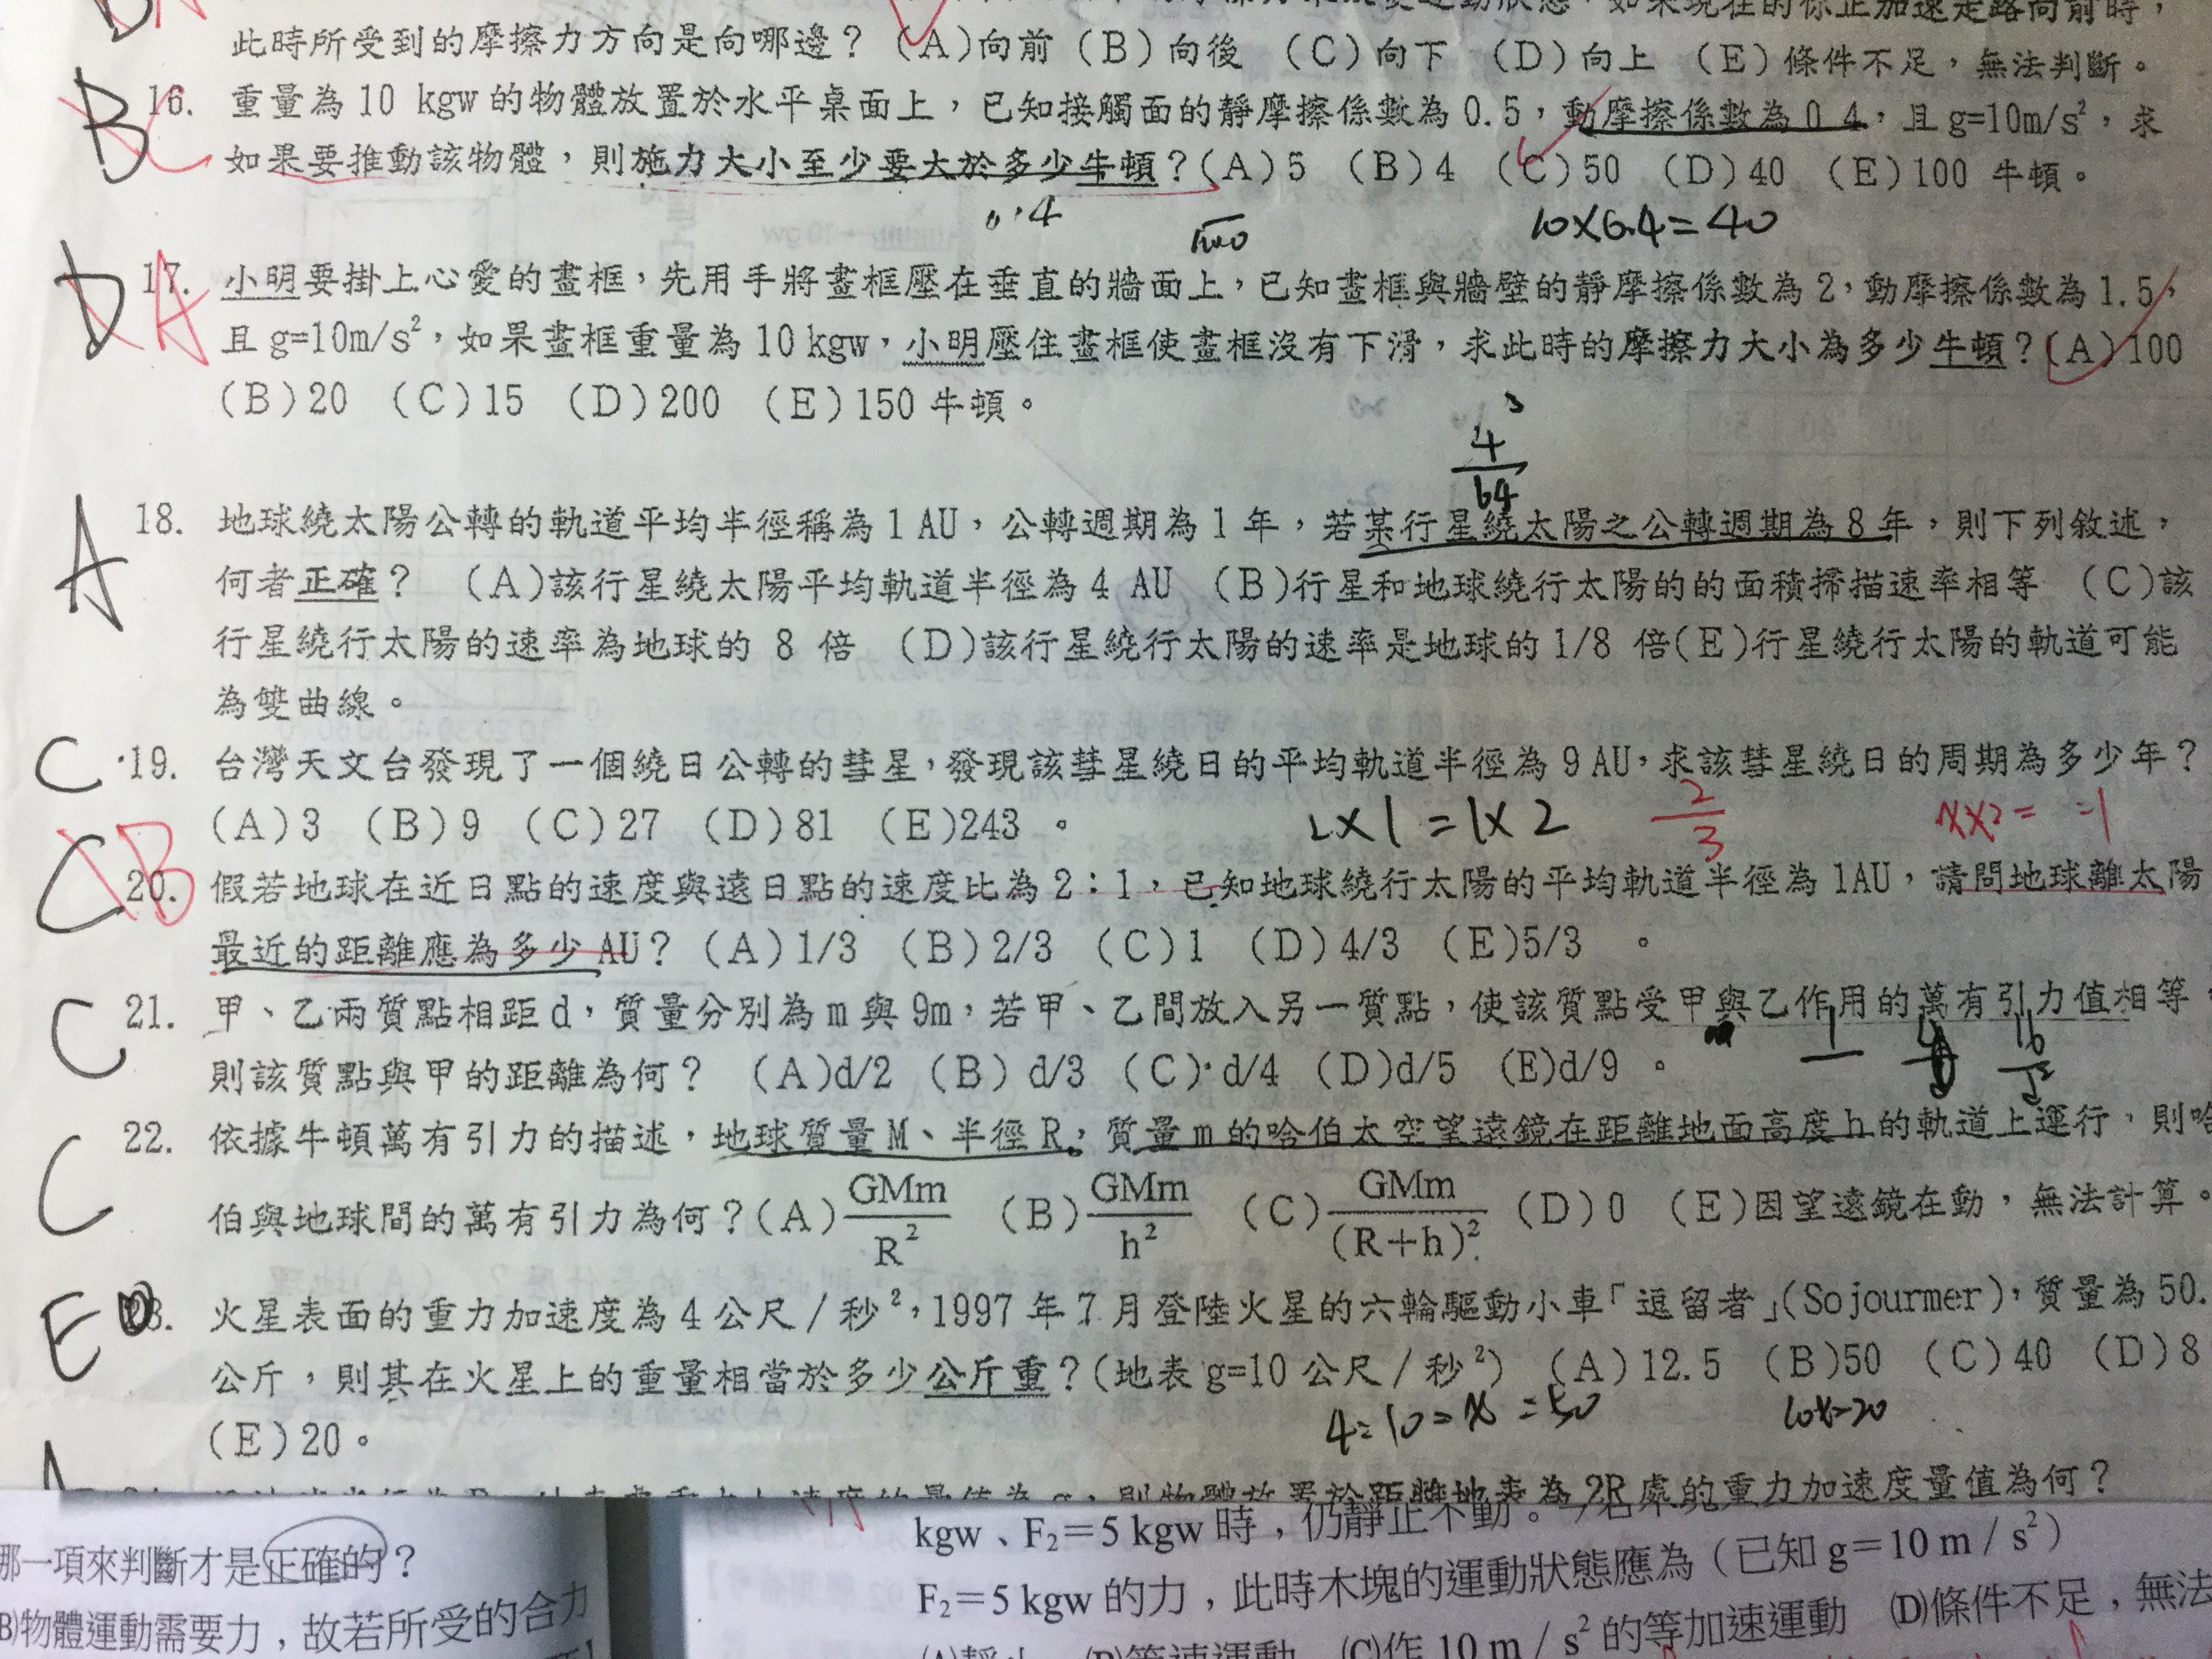 此時所受到的摩擦力方向是向哪邊？(A)向前 (B)向後 (C)向下 (D)向上 (E)條件不足，無法判斷。
B 16. 重量為10 kgw的物體放置於水平桌面上，已知接觸面的靜摩擦係數為0.5，動摩擦係數為0.4，且g=10m/s²，求
如果要推動該物體，則施力大小至少要大於多少牛頓？(A)5 (B)4 (C)50 (D)40 (E)100 牛頓。
0.4
10×0.4=40
D A 17. 小明要掛上心愛的畫框，先用手將畫框壓在垂直的牆面上，已知畫框與牆壁的靜摩擦係數為2，動摩擦係數為1.5，
且g=10m/s²，如果畫框重量為10 kgw，小明壓住畫框使畫框沒有下滑，求此時的摩擦力大小為多少牛頓？(A)100
(B)20 (C)15 (D)200 (E)150 牛頓。
3
4
64
A 18. 地球繞太陽公轉的軌道平均半徑稱為1 AU，公轉週期為1年，若某行星繞太陽之公轉週期為8年，則下列敘述，
何者正確？ (A)該行星繞太陽平均軌道半徑為4 AU (B)行星和地球繞行太陽的的面積掃描速率相等 (C)該
行星繞行太陽的速率為地球的 8 倍 (D)該行星繞行太陽的速率是地球的1/8 倍(E)行星繞行太陽的軌道可能
為雙曲線。
C 19. 台灣天文台發現了一個繞日公轉的彗星，發現該彗星繞日的平均軌道半徑為9 AU，求該彗星繞日的周期為多少年？
(A)3 (B)9 (C)27 (D)81 (E)243 。
2×1=1×2
2
3
C B 20. 假若地球在近日點的速度與遠日點的速度比為2：1，已知地球繞行太陽的平均軌道半徑為1AU，請問地球離太陽
最近的距離應為多少AU？ (A)1/3 (B)2/3 (C)1 (D)4/3 (E)5/3 。
C 21. 甲、乙兩質點相距d，質量分別為m與9m，若甲、乙間放入另一質點，使該質點受甲與乙作用的萬有引力值相等，
則該質點與甲的距離為何？ (A)d/2 (B) d/3 (C) d/4 (D)d/5 (E)d/9 。
C 22. 依據牛頓萬有引力的描述，地球質量M、半徑R，質量m的哈伯太空望遠鏡在距離地面高度h的軌道上運行，則哈
伯與地球間的萬有引力為何？(A)GMm/R² (B)GMm/h² (C)GMm/(R+h)² (D)0 (E)因望遠鏡在動，無法計算。
E 23. 火星表面的重力加速度為4公尺／秒²，1997年7月登陸火星的六輪驅動小車「逗留者」(Sojourmer)，質量為50.
公斤，則其在火星上的重量相當於多少公斤重？(地表g=10公尺／秒²) (A)12.5 (B)50 (C)40 (D)8
(E)20。
處的重力加速度量值為何？
那一項來判斷才是正確的？
(B)物體運動需要力，故若所受的合力
kgw、F₂＝5 kgw時，仍靜止不動。
F₂＝5 kgw的力，此時木塊的運動狀態應為（已知g＝10 m／s²）
(B)等速運動 (C)作10 m／s²的等加速運動 (D)條件不足，無法